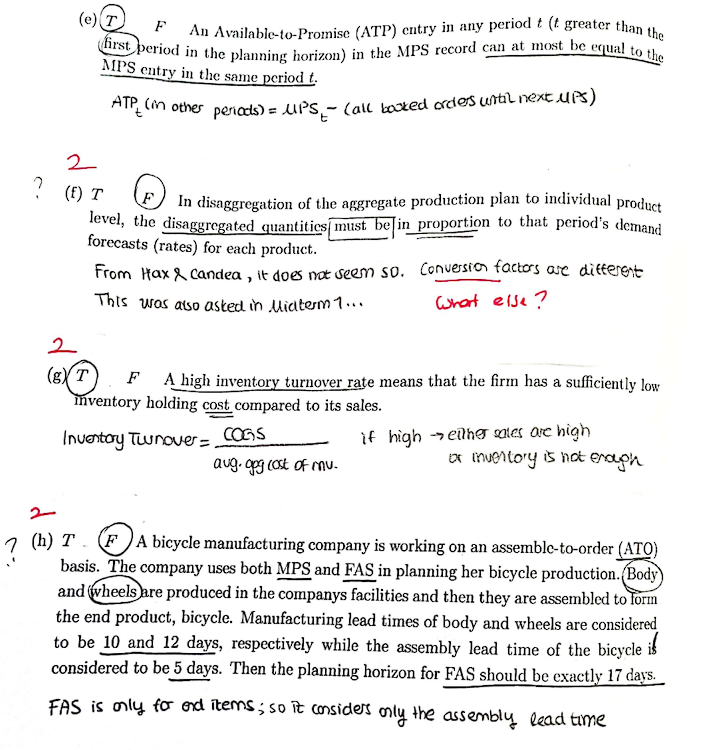 (e) T F An Available-to-Promise (ATP) entry in any period t (t greater than the
first period in the planning horizon) in the MPS record can at most be equal to the
MPS entry in the same period t.
ATPt (in other periods) = MPSt - (all booked orders until next MPS)
2
? (f) T F In disaggregation of the aggregate production plan to individual product
level, the disaggregated quantities must be in proportion to that period's demand
forecasts (rates) for each product.
From Hax & Candea, it does not seem so. Conversion factors are different
This was also asked in Midterm 1... What else?
2
(g) T F A high inventory turnover rate means that the firm has a sufficiently low
inventory holding cost compared to its sales.
Inventory Turnover = COGS if high → either sales are high
avg. agg cost of inv. or inventory is not enough
2
? (h) T F A bicycle manufacturing company is working on an assemble-to-order (ATO)
basis. The company uses both MPS and FAS in planning her bicycle production. Body
and wheels are produced in the companys facilities and then they are assembled to form
the end product, bicycle. Manufacturing lead times of body and wheels are considered
to be 10 and 12 days, respectively while the assembly lead time of the bicycle is
considered to be 5 days. Then the planning horizon for FAS should be exactly 17 days.
FAS is only for end items; so it considers only the assembly lead time